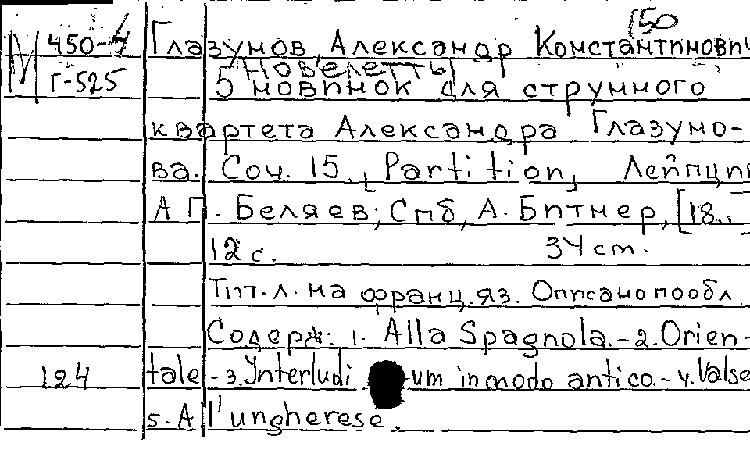 150
М 450-4 Глазунов, Александр Константинович
Новелетты
Г-525 5 новинок для струнного
квартета Александра Глазуно-
ва. Соч. 15., Partition, Лейпциг
А П. Беляев; Спб, А. Битнер, [18..
12 с. 34 cm.
Тит.л. на франц.яз. Описано по обл
Содерж: 1. Alla Spagnola.-2.Orien-
124 tale -3.Interludi um in modo antico.-4.Valse
5.-A l'ungherese.